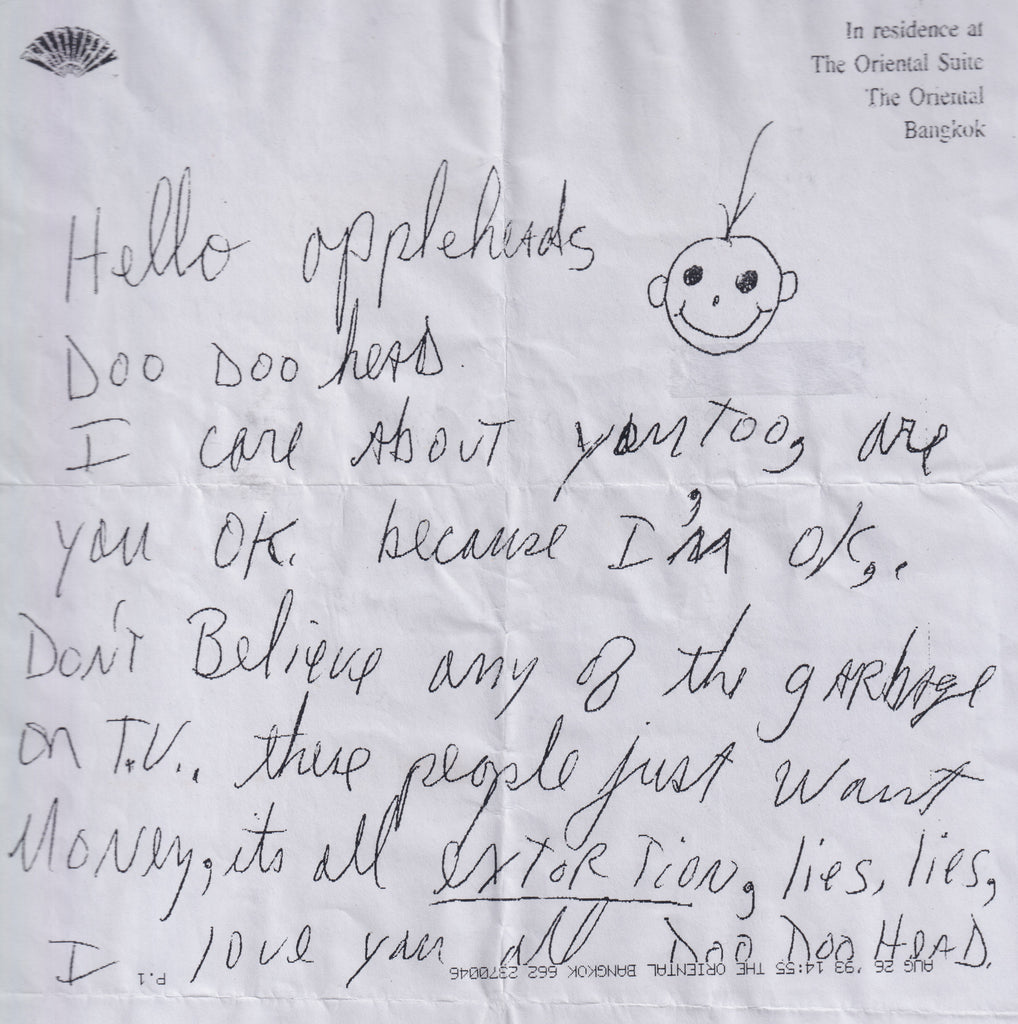 In residence at
The Oriental Suite
The Oriental
Bangkok
Hello appleheads
Doo Doo head
I care about you too, are
you OK. because I'm OK,.
Don't Believe any of the garbage
on T.V.. these people just want
Money, its all extortion, lies, lies,
I love you all Doo Doo Head.
AUG 26 '93 14:55 THE ORIENTAL BANGKOK 662 2370046 P.1